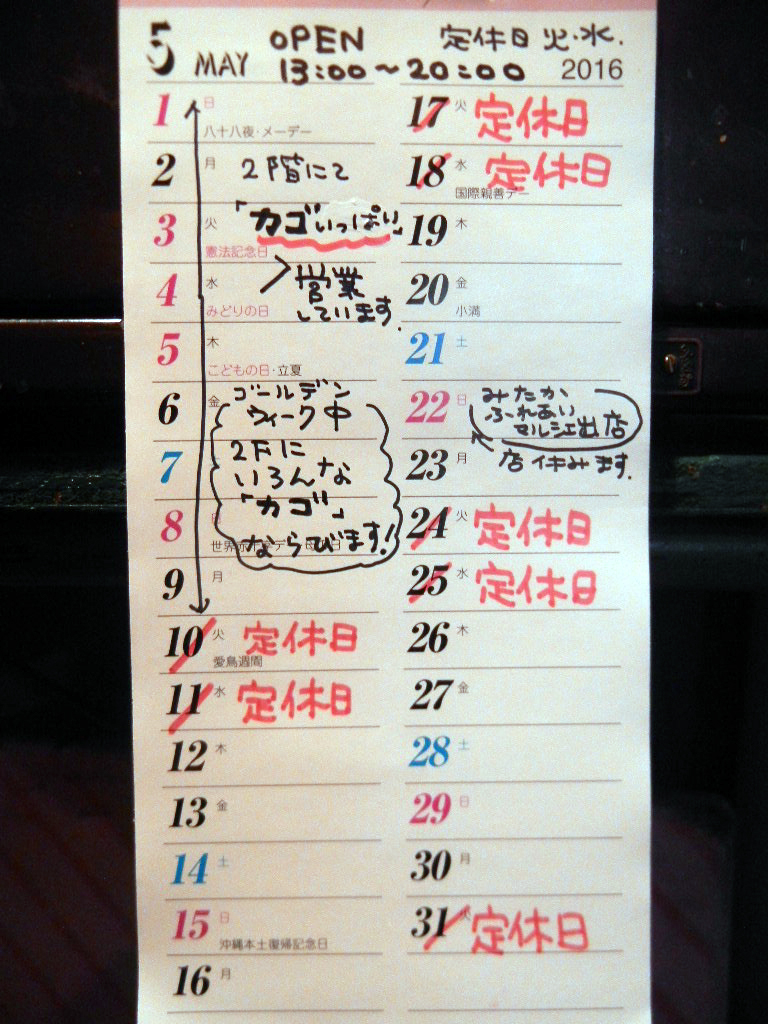 5 MAY OPEN 13:00~20:00 定休日 火・水. 2016
1 日 八十八夜・メーデー
2 月 2階にて
3 火 憲法記念日 「カゴいっぱい」
4 水 みどりの日 営業しています.
5 木 こどもの日・立夏
6 金 ゴールデン
ウィーク中
7 2Fに
いろんな
8 日 「カゴ」
ならびます!
9 月
10 火 愛鳥週間 定休日
11 水 定休日
12 木
13 金
14 土
15 日 沖縄本土復帰記念日
16 月
17 火 定休日
18 水 国際親善デー 定休日
19 木
20 金 小満
21 土
22 日 みたか
ふれあい
マルシェ出店
23 月 店休みます.
24 火 定休日
25 水 定休日
26 木
27 金
28 土
29 日
30 月
31 火 定休日